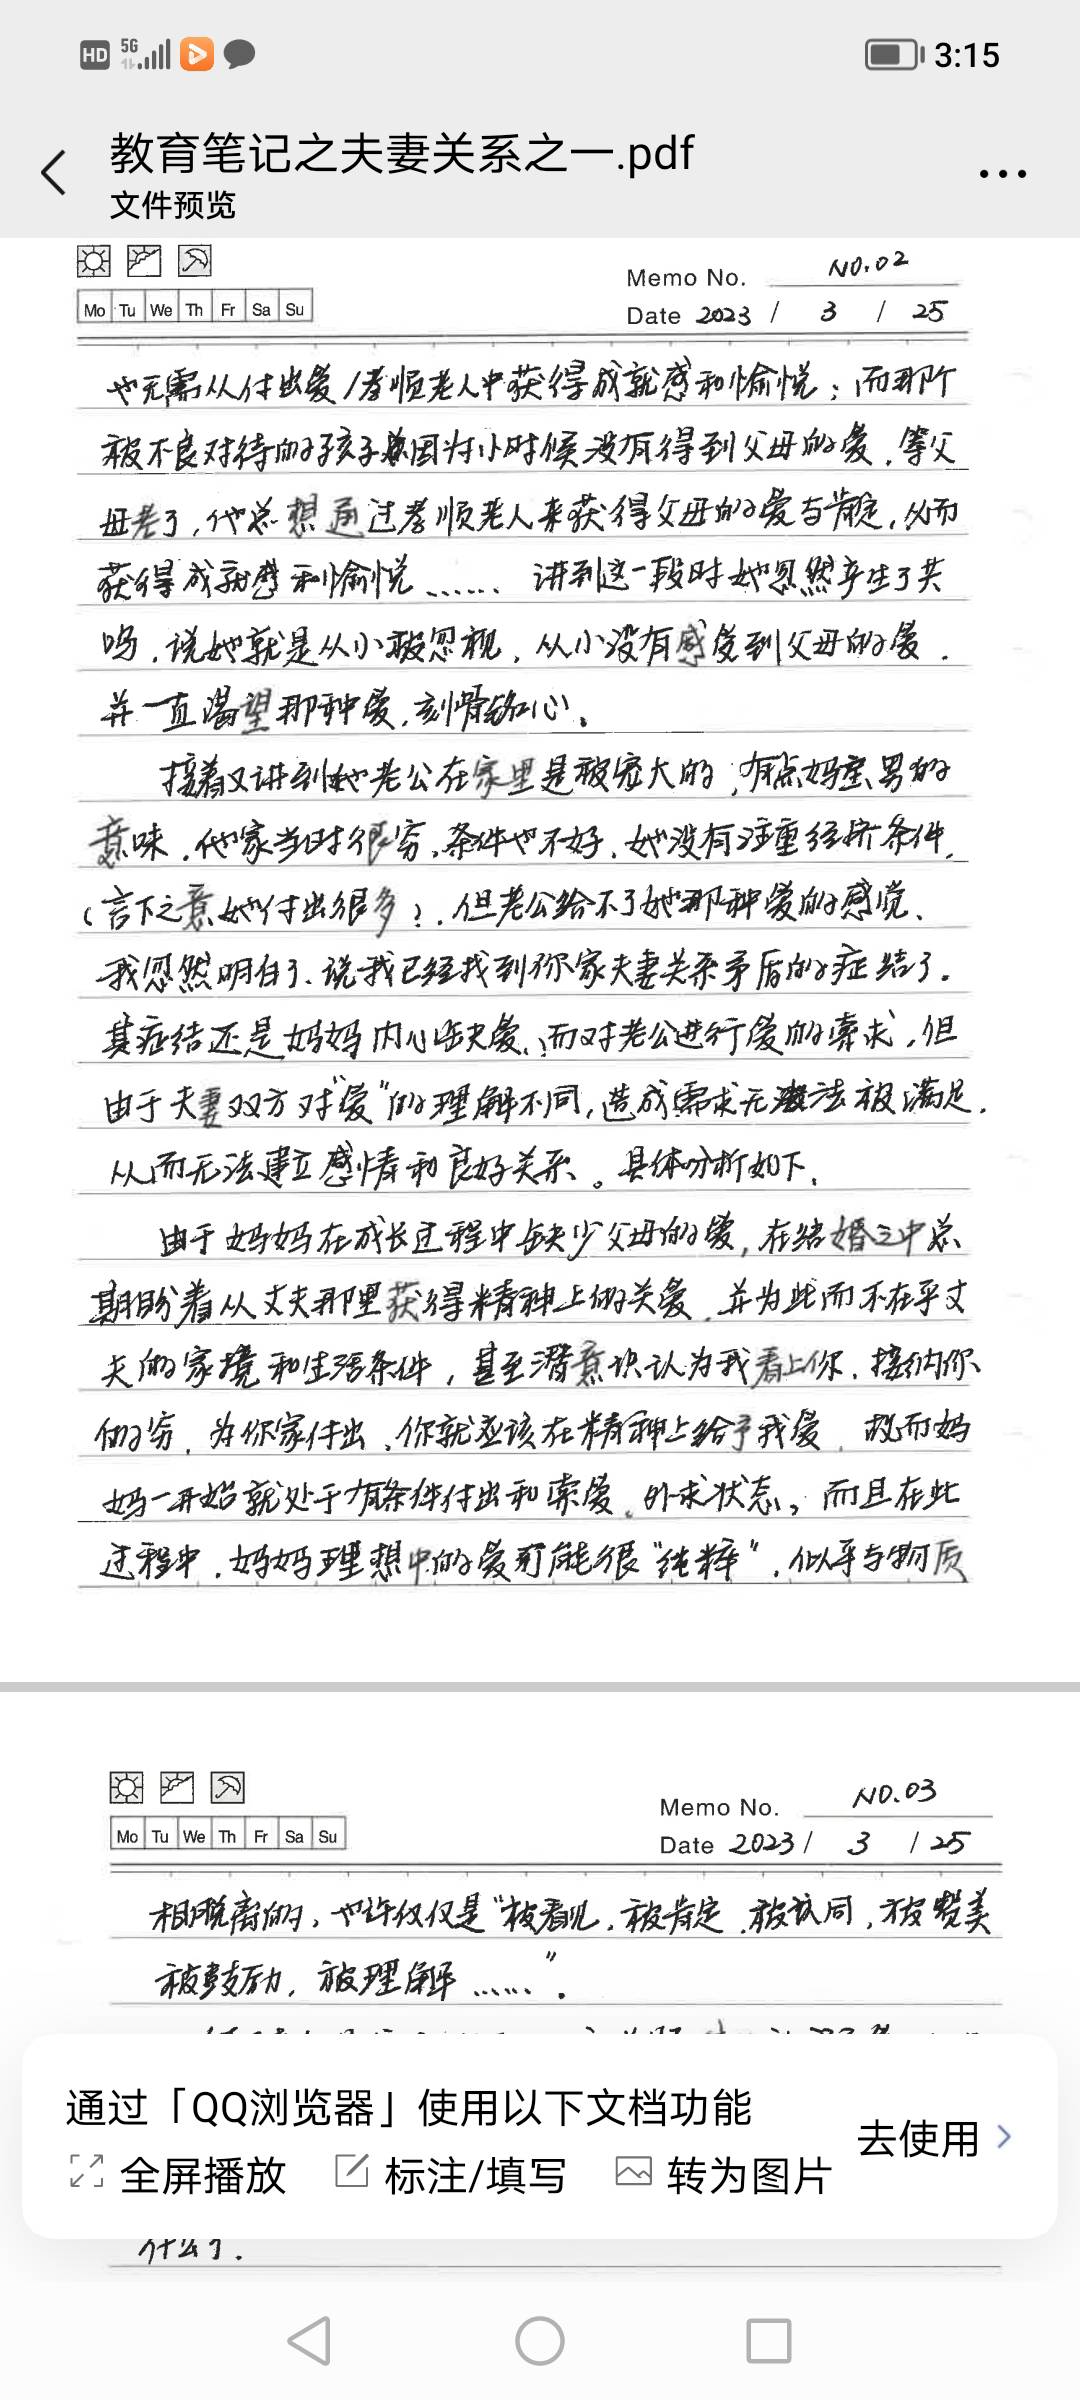 HD 5G 3:15
教育笔记之夫妻关系之一.pdf
文件预览
Memo No. NO.02
Mo Tu We Th Fr Sa Su
Date 2023 / 3 / 25
也无需从付出爱/孝顺老人中获得成就感和愉悦；而那个
被不良对待的孩子总因为小时候没有得到父母的爱，等父
母老了，他总想通过孝顺老人来获得父母的爱与肯定，从而
获得成就感和愉悦……. 讲到这一段时她忽然产生了共
鸣，说她就是从小被忽视，从小没有感受到父母的爱，
并一直渴望那种爱，刻骨铭心。
接着又讲到她老公在家里是被宠大的，有点妈宝男的
意味，他家当时很穷，条件也不好，她没有注重经济条件，
（言下之意她付出很多），但老公给不了她那种爱的感觉、
我忽然明白了、说我已经找到你家夫妻关系矛盾的症结了。
其症结还是妈妈内心缺爱、而对老公进行爱的索求，但
由于夫妻双方对"爱"的理解不同，造成需求无法被满足，
从而无法建立感情和良好关系。具体分析如下，
由于妈妈在成长过程中缺少父母的爱，在结婚之中总
期盼着从丈夫那里获得精神上的关爱，并为此而不在乎丈
夫的家境和生活条件，甚至潜意识认为我看上你，接纳你
的穷，为你家付出，你就应该在精神上给予我爱，故而妈
妈一开始就处于有条件付出和索爱、外求状态，而且在此
过程中，妈妈理想中的爱可能很"纯粹"，似乎与物质
Memo No. NO.03
Mo Tu We Th Fr Sa Su
Date 2023 / 3 / 25
相脱离的，也许仅仅是"被看见，被肯定，被认同，被赞美
被鼓励，被理解……"。
通过「QQ浏览器」使用以下文档功能
去使用
全屏播放 标注/填写 转为图片
什么了.